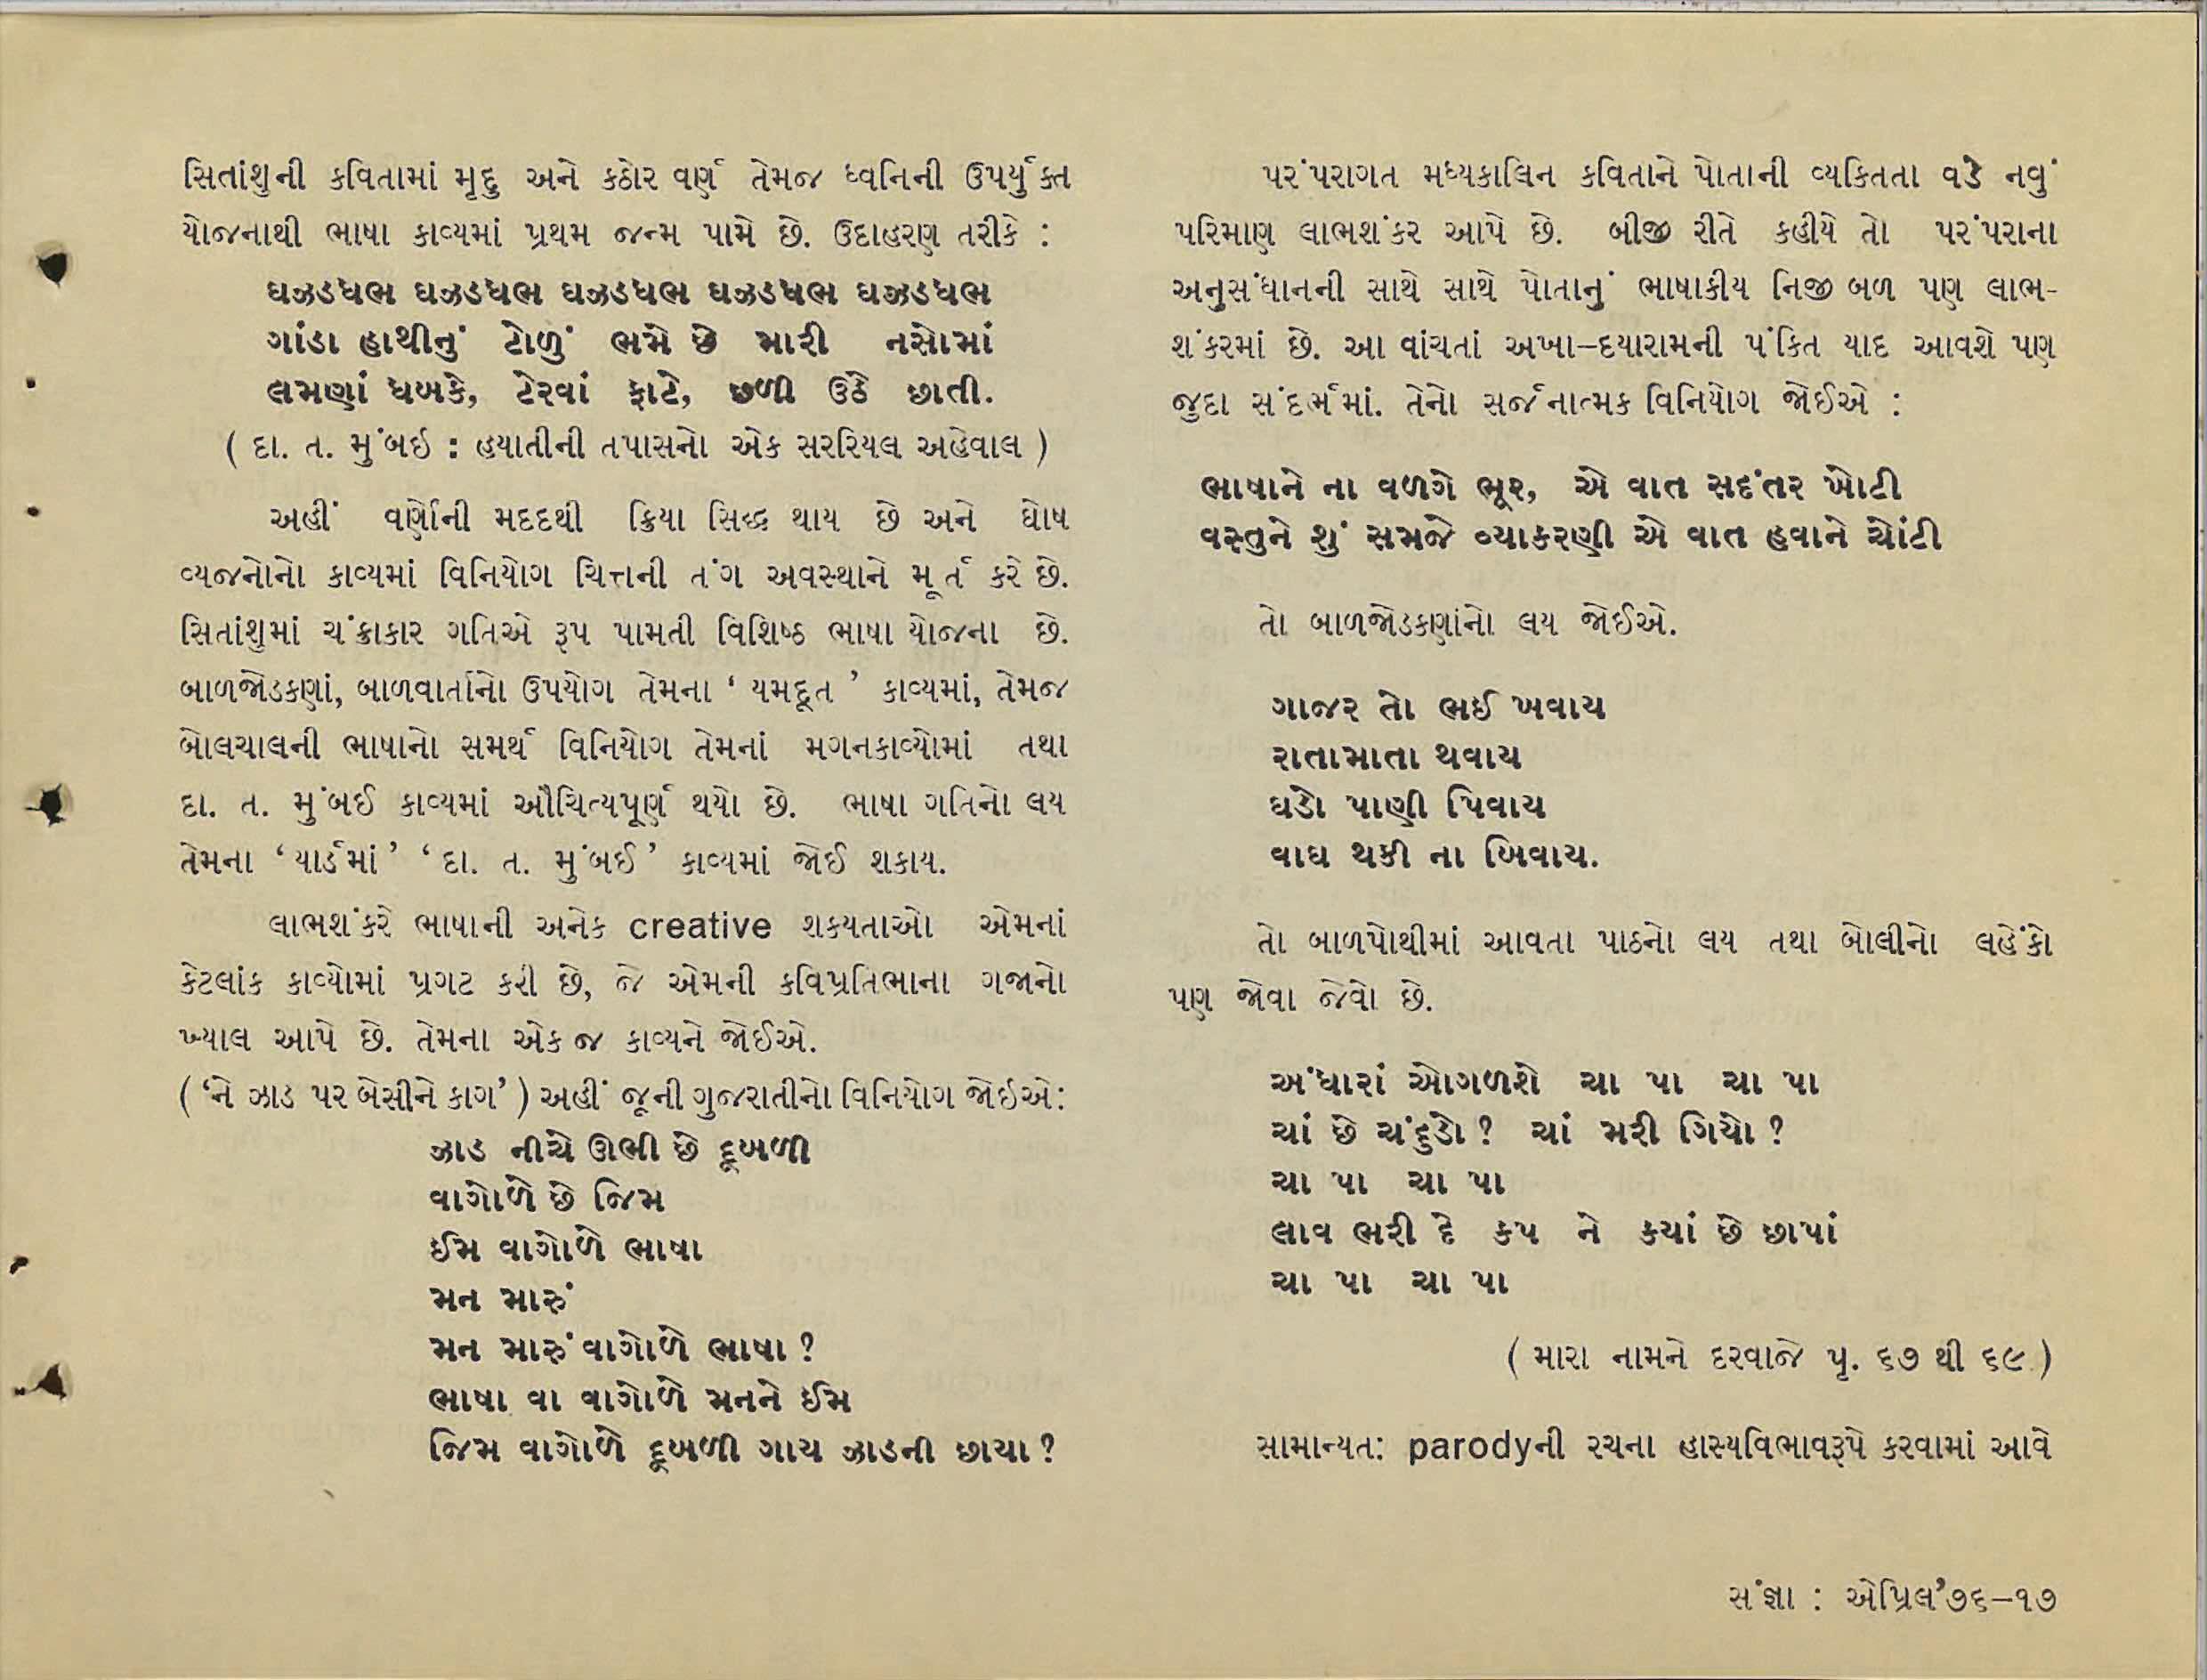 સિતાંશુની કવિતામાં મૃદુ અને કઠોર વર્ણ તેમજ ધ્વનિની ઉપર્યુક્ત
યોજનાથી ભાષા કાવ્યમાં પ્રથમ જન્મ પામે છે. ઉદાહરણ તરીકે :
ઘઝડધભ ઘઝડધભ ઘઝડધભ ઘઝડધભ ઘઝડધભ
ગાંડા હાથીનું ટોળું ભમે છે મારી નસોમાં
લમણાં ધબકે, ટેરવાં ફાટે, છળી ઉઠે છાતી.
( દા. ત. મુંબઇ : હયાતીની તપાસનો એક સરરિયલ અહેવાલ )
અહીં વર્ણોની મદદથી ક્રિયા સિદ્ધ થાય છે અને ઘોષ
વ્યજનોનો કાવ્યમાં વિનિયોગ ચિત્તની તંગ અવસ્થાને મૂર્ત કરે છે.
સિતાંશુમાં ચંક્રાકાર ગતિએ રૂપ પામતી વિશિષ્ઠ ભાષા યોજના છે.
બાળજોડકણાં, બાળવાર્તાનો ઉપયોગ તેમના ‘ યમદૂત ’ કાવ્યમાં, તેમજ
બોલચાલની ભાષાનો સમર્થ વિનિયોગ તેમનાં મગનકાવ્યોમાં તથા
દા. ત. મુંબઈ કાવ્યમાં ઔચિત્યપૂર્ણ થયો છે. ભાષા ગતિનો લય
તેમના ‘યાર્ડમાં’ ‘દા. ત. મુંબઈ’ કાવ્યમાં જોઈ શકાય.
લાભશંકરે ભાષાની અનેક creative શકયતાઓ એમનાં
કેટલાંક કાવ્યોમાં પ્રગટ કરી છે, જે એમની કવિપ્રતિભાના ગજાનો
ખ્યાલ આપે છે. તેમના એક જ કાવ્યને જોઈએ.
( ‘ને ઝાડ પર બેસીને કાગ’ ) અહીં જૂની ગુજરાતીનો વિનિયોગ જોઇએ:
ઝાડ નીચે ઊભી છે દૂબળી
વાગોળે છે જિમ
ઈમ વાગોળે ભાષા
મન મારું
મન મારું વાગોળે ભાષા ?
ભાષા વા વાગોળે મનને ઈમ
જિમ વાગોળે દૂબળી ગાય ઝાડની છાયા ?
પરંપરાગત મધ્યકાલિન કવિતાને પોતાની વ્યકિતતા વડે નવું
પરિમાણ લાભશંકર આપે છે. બીજી રીતે કહીયે તો પરંપરાના
અનુસંધાનની સાથે સાથે પોતાનું ભાષાકીય નિજી બળ પણ લાભ-
શંકરમાં છે. આ વાંચતાં અખા–દયારામની પંકિત યાદ આવશે પણ
જુદા સંદર્ભમાં. તેનો સર્જનાત્મક વિનિયોગ જોઈએ :
ભાષાને ના વળગે ભૂર, એ વાત સદંતર ખોટી
વસ્તુને શું સમજે વ્યાકરણી એ વાત હવાને ચોંટી
તો બાળજોડકણાંનો લય જોઈએ.
ગાજર તો ભઈ ખવાય
રાતામાતા થવાય
ઘડો પાણી પિવાય
વાઘ થકી ના બિવાય.
તો બાળપોથીમાં આવતા પાઠનો લય તથા બોલીનો લહેંકો
પણ જોવા જેવો છે.
અંધારાં ઓગળશે ચા પા ચા પા
ચાં છે ચંદુડો ? ચાં મરી ગિયો ?
ચા પા ચા પા
લાવ ભરી દે કપ ને કયાં છે છાપાં
ચા પા ચા પા
( મારા નામને દરવાજે પૃ. ૬૭ થી ૬૯ )
સામાન્યત: parodyની રચના હાસ્યવિભાવરૂપે કરવામાં આવે
સંજ્ઞા : એપ્રિલ’૭૬–૧૭